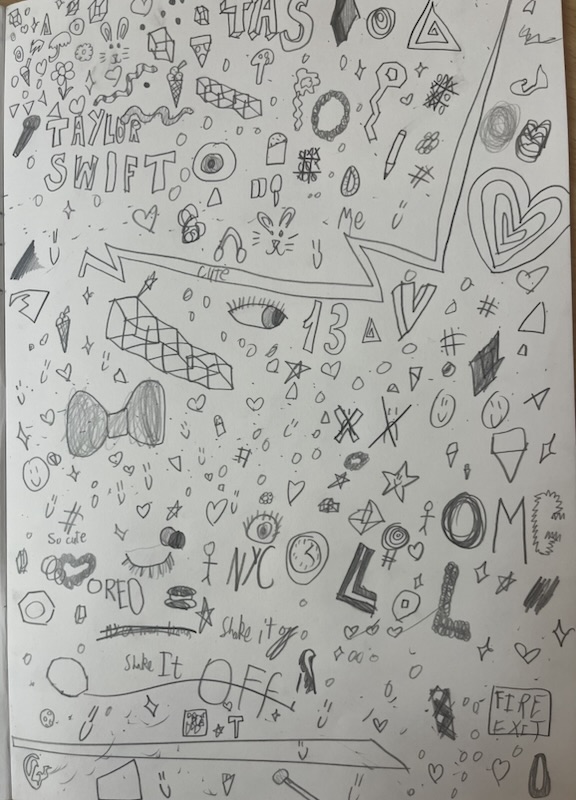 TAS
TAYLOR
SWIFT
Me
cute
13
V
X X
So cute
OM
OREO
NYC
LOL
Shake it
Shake It
OFF
T
FIRE
EXIT